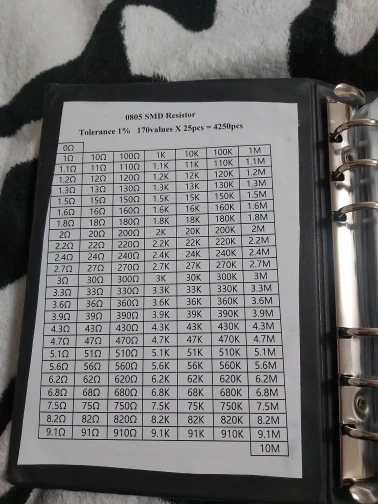 0805 SMD Resistor
Tolerance 1% 170values X 25pcs = 4250pcs
0Ω
1Ω 10Ω 100Ω 1K 10K 100K 1M
1.1Ω 11Ω 110Ω 1.1K 11K 110K 1.1M
1.2Ω 12Ω 120Ω 1.2K 12K 120K 1.2M
1.3Ω 13Ω 130Ω 1.3K 13K 130K 1.3M
1.5Ω 15Ω 150Ω 1.5K 15K 150K 1.5M
1.6Ω 16Ω 160Ω 1.6K 16K 160K 1.6M
1.8Ω 18Ω 180Ω 1.8K 18K 180K 1.8M
2Ω 20Ω 200Ω 2K 20K 200K 2M
2.2Ω 22Ω 220Ω 2.2K 22K 220K 2.2M
2.4Ω 24Ω 240Ω 2.4K 24K 240K 2.4M
2.7Ω 27Ω 270Ω 2.7K 27K 270K 2.7M
3Ω 30Ω 300Ω 3K 30K 300K 3M
3.3Ω 33Ω 330Ω 3.3K 33K 330K 3.3M
3.6Ω 36Ω 360Ω 3.6K 36K 360K 3.6M
3.9Ω 39Ω 390Ω 3.9K 39K 390K 3.9M
4.3Ω 43Ω 430Ω 4.3K 43K 430K 4.3M
4.7Ω 47Ω 470Ω 4.7K 47K 470K 4.7M
5.1Ω 51Ω 510Ω 5.1K 51K 510K 5.1M
5.6Ω 56Ω 560Ω 5.6K 56K 560K 5.6M
6.2Ω 62Ω 620Ω 6.2K 62K 620K 6.2M
6.8Ω 68Ω 680Ω 6.8K 68K 680K 6.8M
7.5Ω 75Ω 750Ω 7.5K 75K 750K 7.5M
8.2Ω 82Ω 820Ω 8.2K 82K 820K 8.2M
9.1Ω 91Ω 910Ω 9.1K 91K 910K 9.1M
10M